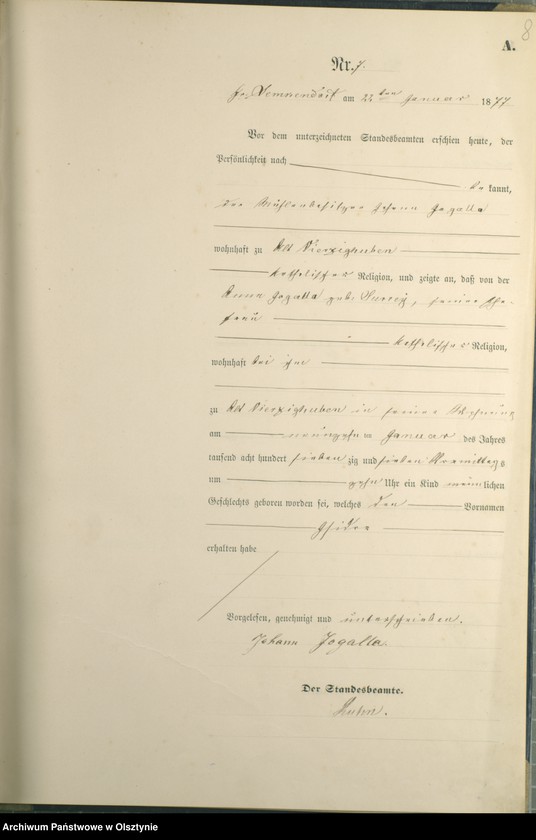 8
A.
Nr. 7.
Gr. Lemkendorf am 22 ten Januar 1877
Vor dem unterzeichneten Standesbeamten erschien heute, der
Persönlichkeit nach
bekannt,
der Mühlenbesitzer Johann Jogalla
wohnhaft zu Alt Vierzighuben
katholischer Religion, und zeigte an, daß von der
Anna Jogalla geb. seiner Ehe-
frau
katholischer Religion,
wohnhaft bei ihm
zu Alt Vierzighuben in seiner Wohnung
am neunzehn ten Januar des Jahres
tausend acht hundert sieben zig und sieben Vormittags
um zehn Uhr ein Kind männlichen
Geschlechts geboren worden sei, welches den Vornamen
Isidor
erhalten habe
Vorgelesen, genehmigt und unterschrieben.
Johann Jogalla
Der Standesbeamte.
Archiwum Państwowe w Olsztynie